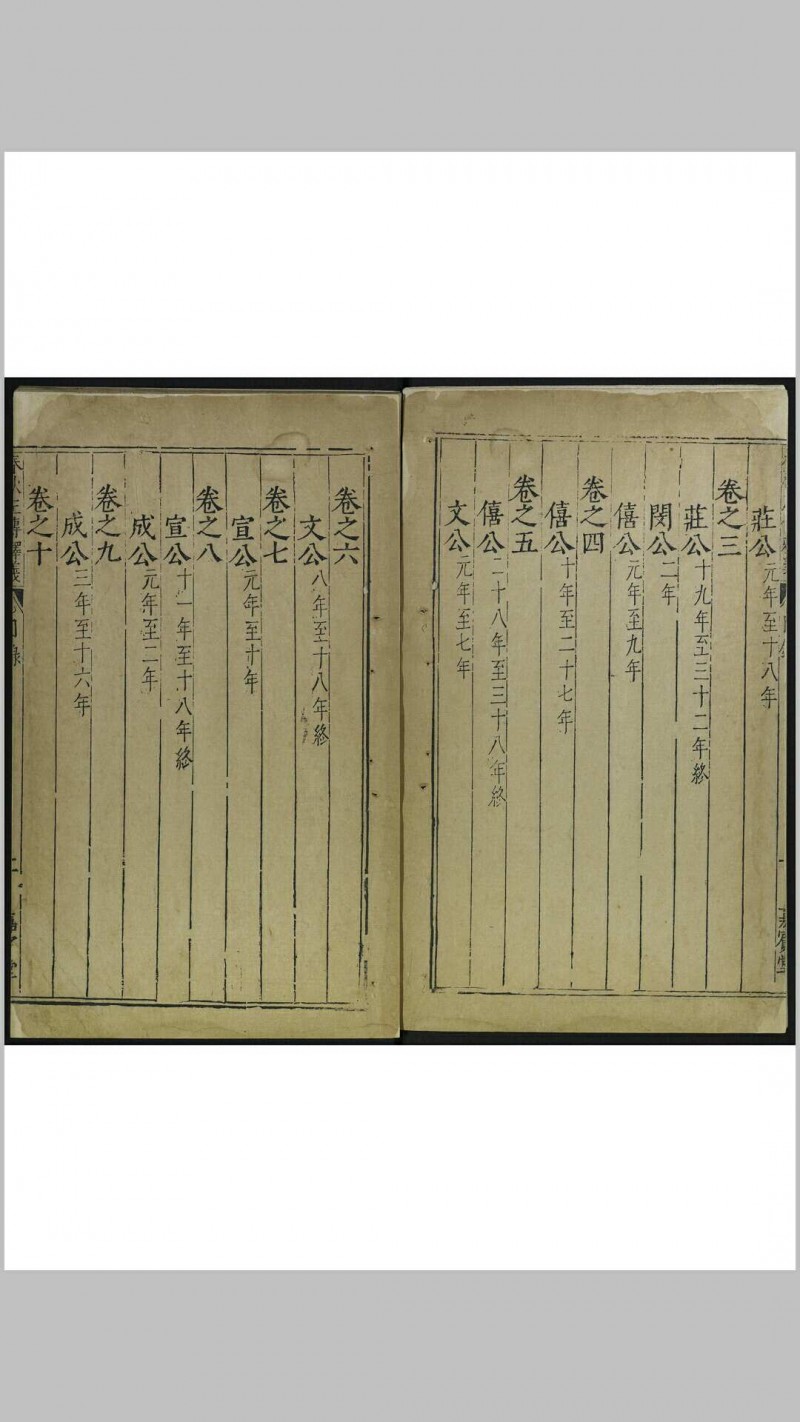 莊公元年至十八年
卷之三
莊公十九年至三十二年終
閔公二年
僖公元年至九年
卷之四
僖公十年至二十七年
卷之五
僖公二十八年至三十八年終
文公元年至七年
卷之六
文公八年至十八年終
卷之七
宣公元年至十年
卷之八
宣公十一年至十八年終
成公元年至二年
卷之九
成公三年至十六年
卷之十